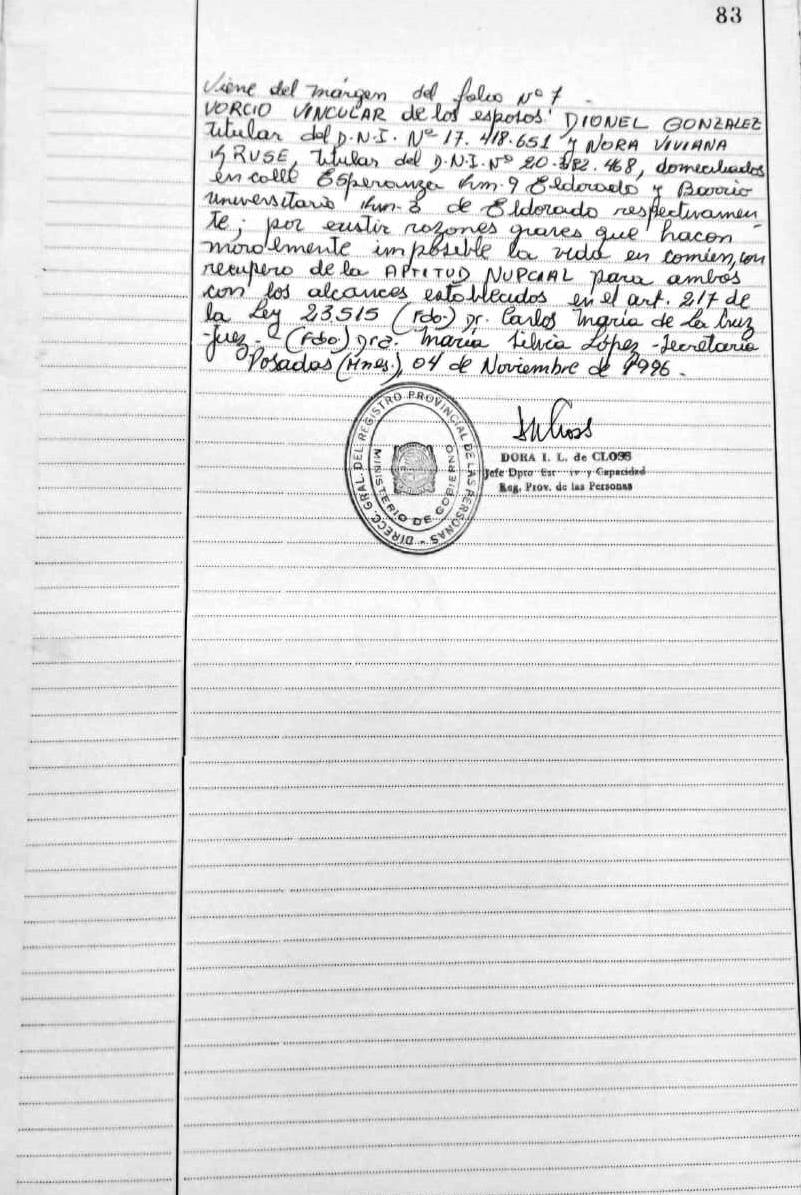 83
Viene del márgen del folio Nº 7 -
VORCIO VINCULAR de los esposos: DIONEL GONZALEZ
titular del D.N.I. Nº 17.418.651 y NORA VIVIANA
KRUSE, titular del D.N.I. Nº 20. .468, domiciliados
en calle Esperanza km. 9 Eldorado y Barrio
Universitario km. 3 de Eldorado respectivamen
te; por existir razones graves que hacen
moralmente imposible la vida en común, con
recupero de la APTITUD NUPCIAL para ambos
con los alcances establecidos en el art. 217 de
la Ley 23.515 (Fdo.) Dr. Carlos María de La Cruz
-Juez- (Fdo) Dra. María Silvia López -Secretaria
Posadas (Mnes.), 04 de Noviembre de 1996.
DIRECC. GRAL. DEL REGISTRO PROVINCIAL DE LAS PERSONAS -
MINISTERIO DE GOBIERNO
DORA I. L. de CLOSS
Jefe Dpto y Capacidad
Reg. Prov. de las Personas